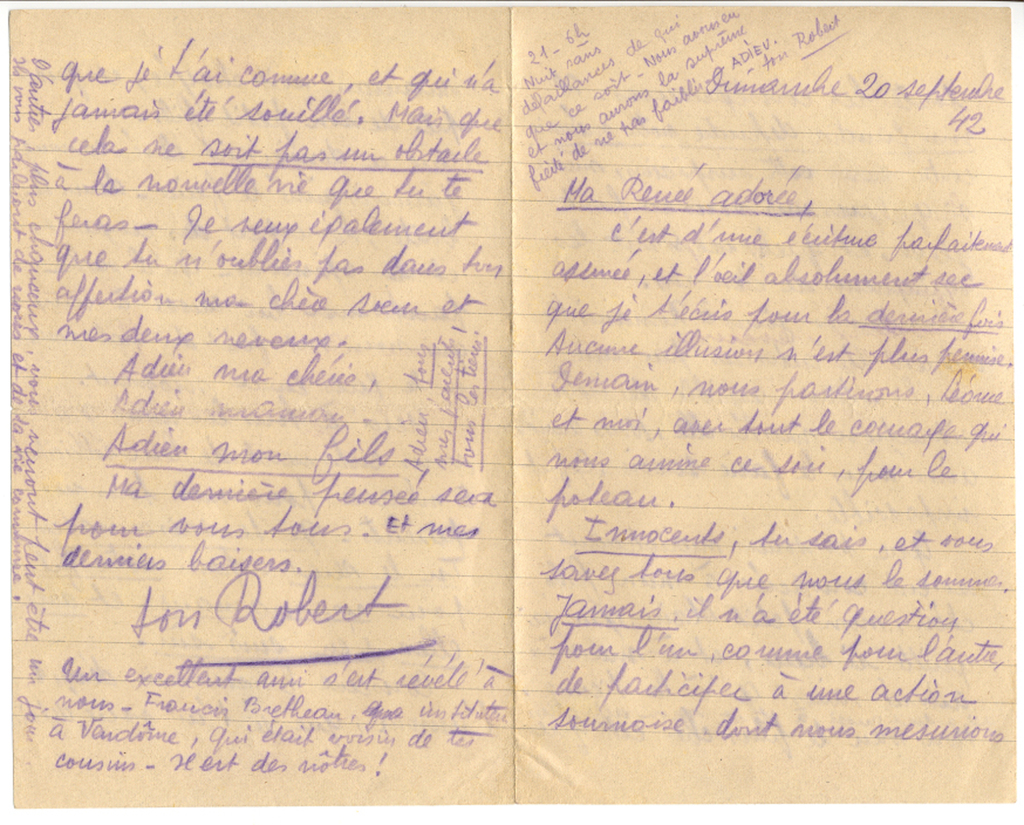 21-6h
Nuit sans
défaillances de qui
que ce soit - Nous avons eu
et nous aurons la suprême
fierté de ne pas faiblir. ADIEU.
ton Robert
Dimanche 20 septembre
42
Ma Renée adorée,
c'est d'une écriture parfaitement
assurée, et l'œil absolument sec
que je t'écris pour la dernière fois
Aucune illusion n'est plus permise.
Demain, nous partirons, Léonce
et moi, avec tout le courage qui
nous anime ce soir, pour le
poteau.
Innocents, tu sais, et vous
savez tous que nous le sommes.
Jamais, il n'a été question
pour l'un, comme pour l'autre,
de participer à une action
sournoise dont nous mesurions
que je t'ai connue, et qui n'a
jamais été souillé. Mais que
cela ne soit pas un obstacle
à la nouvelle vie que tu te
feras - Je veux également
que tu n'oublies pas dans ton
affection ma chère sœur et
mes deux neveux.
Adieu ma chérie,
Adieu maman -
Adieu mon fils -
Ma dernière pensée sera
pour vous tous. Et mes
derniers baisers.
ton Robert
Adieu, tous
mes parents!
tous les tiens!
Un excellent ami s'est révélé à
nous - Francis Bretheau, instituteur
à Vendôme, qui était voisin de tes
cousins - Il est des nôtres!
D'autres, plus chanceux, vous verront peut être un jour
Ils vous parleront de nous et de la vie commune.